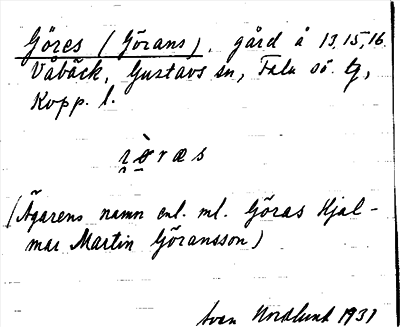 Göres (Görans), gård å 13,15,16
Våbäck, Gustavs sn, Falu sö. tg,
Kopp. l.
(Ägarens namn enl. ml. Göras Hjal-
mar Martin Göransson)
Sven Nordlund 1931